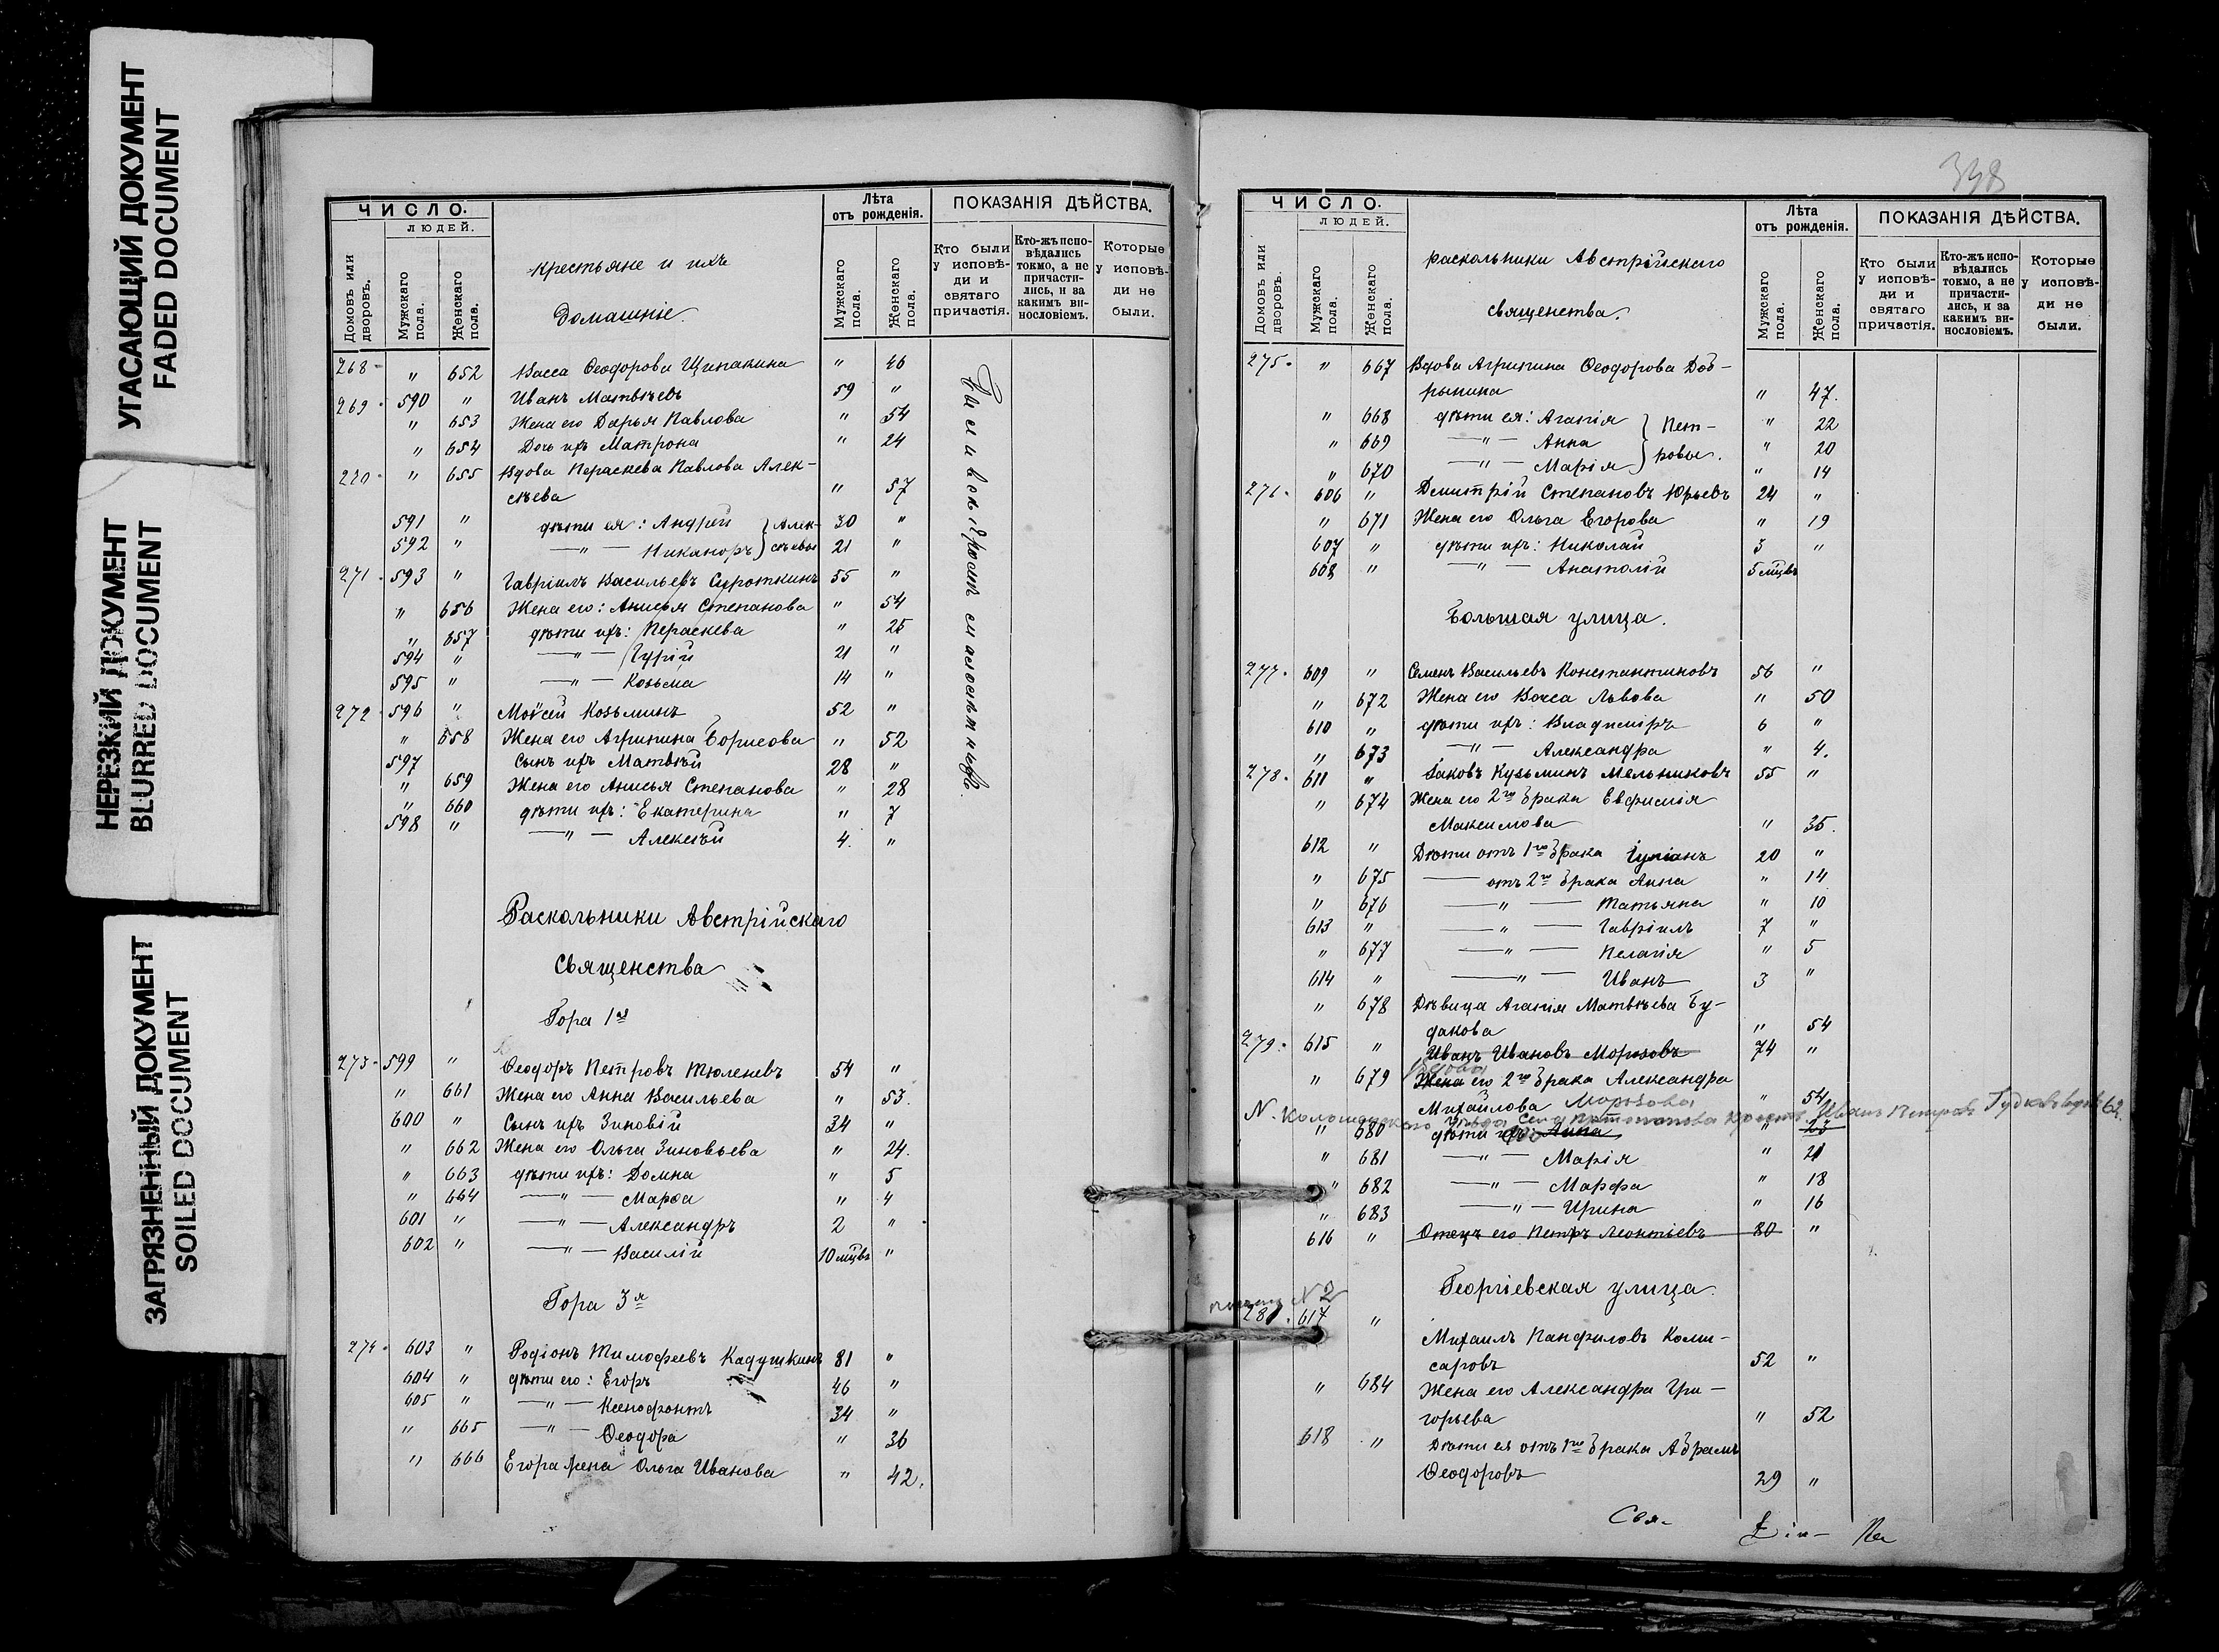 УГАСАЮЩИЙ ДОКУМЕНТ
FADED DOCUMENT
НЕРЕЗКИЙ ДОКУМЕНТ
BLURRED DOCUMENT
ЗАГРЯЗНЕННЫЙ ДОКУМЕНТ
SOILED DOCUMENT
ЧИСЛО.
ЛЮДЕЙ.
Домовъ или дворовъ.
Мужскаго пола.
Женскаго пола.
крестьяне и ихъ
домашніе.
Лѣта отъ рожденія.
Мужскаго пола.
Женскаго пола.
ПОКАЗАНІЯ ДѢЙСТВА.
Кто были у исповѣди и святаго причастія.
Кто-жъ исповѣдались токмо, а не причастились, и за какимъ винословіемъ.
Которые у исповѣди не были.
268 " 652 Васса Ѳеодорова Щипакина " 46
269 590 " Иванъ Матвѣевъ 59 "
" 653 Жена его Дарья Павлова " 54
" 654 Дочь ихъ Матрона " 24
270 " 655 Вдова Параскева Павлова Алек-
сѣева " 57
591 " дѣти ея: Андрей } Алек- 30 "
592 " —"— Никаноръ } сѣевы 21 "
271 593 " Гавріилъ Васильевъ Сироткинъ 55 "
" 656 Жена его: Анисья Степанова " 54
" 657 дѣти ихъ: Параскева " 25
594 " —"— Гурій 21 "
595 " —"— Козьма 14 "
272 596 " Моѵсей Козьминъ 52 "
" 658 Жена его Агрипина Борисова " 52
597 Сынъ ихъ Матвѣй 28 "
" 659 Жена его Анисья Степанова " 28
" 660 дѣти ихъ: Екатерина " 7
598 " —"— Алексѣй 4. "
Раскольники Австрійскаго
Священства
Гора 1я
273 599 " Ѳеодоръ Петровъ Тюленевъ 54 "
" 661 Жена его Анна Васильева " 53.
600 " Сынъ ихъ Зиновій 34 "
" 662 Жена его Ольга Зиновьева " 24.
" 663 дѣти ихъ: Домна " 5
" 664 —"— Марѳа " 4
601 " —"— Александръ 2 "
602 " —"— Василій 10 мцвъ "
Гора 3я
274 603 " Родіонъ Тимофеевъ Кадушкинъ 81 "
604 " дѣти его: Егоръ 46 "
605 " —"— Ксенофонтъ 34 "
" 665 —"— Ѳеодора " 36
" 666 Егора жена Ольга Иванова " 42.
338
ЧИСЛО.
ЛЮДЕЙ.
Домовъ или дворовъ.
Мужскаго пола.
Женскаго пола.
раскольники Австрійскаго
священства.
Лѣта отъ рожденія.
Мужскаго пола.
Женскаго пола.
ПОКАЗАНІЯ ДѢЙСТВА.
Кто были у исповѣди и святаго причастія.
Кто-жъ исповѣдались токмо, а не причастились, и за какимъ винословіемъ.
Которые у исповѣди не были.
275 " 667 Вдова Агрипина Ѳеодорова Доб-
рынина " 47.
" 668 дѣти ея: Агапія } Пет- " 22
" 669 —"— Анна } ровы. " 20
" 670 —"— Марія } " 14
276 606 " Дмитрій Степановъ Юрьевъ 24 "
" 671 Жена его Ольга Егорова " 19
607 " дѣти ихъ: Николай 3 "
608 " —"— Анатолій 5 мцвъ
Большая улица.
277 609 " Семенъ Васильевъ Константиновъ 56 "
" 672 Жена его Васса Львова " 50
610 " дѣти ихъ: Владиміръ 6 "
" 673 —"— Александра " 4.
278 611 " Іаковъ Кузьминъ Мельниковъ 55 "
" 674 Жена его 2го брака Евфимія
Максимова " 35.
612 " Дѣти отъ 1го брака Іуліанъ 20 "
" 675 — отъ 2го брака Анна " 14
" 676 —"— Татьяна " 10
613 " —"— Гавріилъ 7 "
" 677 —"— Пелагія " 5
614 " —"— Иванъ 3 "
" 678 Дѣвица Агапія Матвѣева Бу-
дакова " 54
279 615 " Иванъ Ивановъ Морозовъ 74 "
Вдова
" 679 Жена его 2го брака Александра
Михайлова Морозова " 54
" 680 дѣти ихъ: Анна "
" 681 —"— Марія " 21
" 682 —"— Марфа " 18
" 683 —"— Ирина " 16
616 " Отецъ его Петръ Леонтіевъ 80 "
Георгіевская улица
N 2
280 617 " Михаилъ Панфиловъ Коми-
саровъ 52 "
" 684 Жена его Александра Гри-
горьева " 52
618 " Дѣти ея отъ 1го брака Абрамъ
Ѳеодоровъ 29 "
Свя-